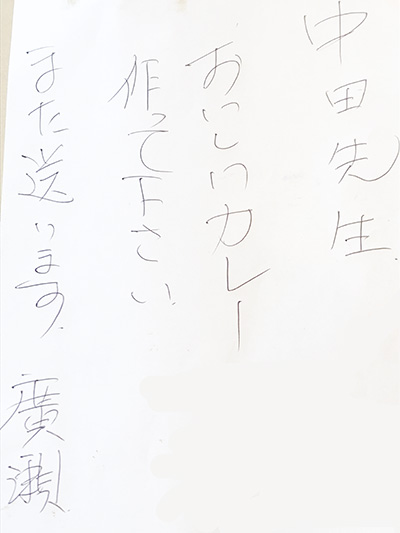 中田先生
おいしいカレー
作って下さい
また送います。廣瀬